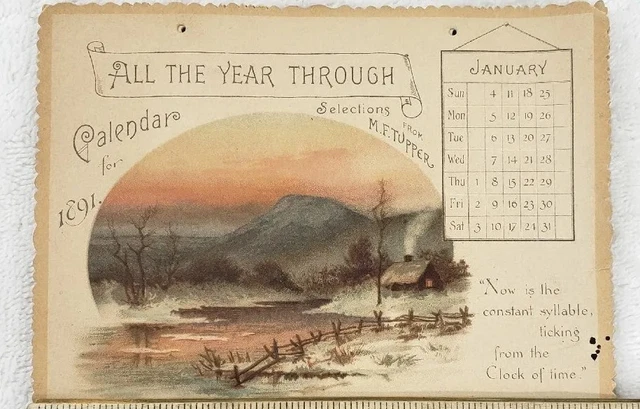 ALL THE YEAR THROUGH
Calendar
for
1891.
Selections
FROM
M.F. TUPPER.
JANUARY
Sun 4 11 18 25
Mon 5 12 19 26
Tue 6 13 20 27
Wed 7 14 21 28
Thu 1 8 15 22 29
Fri 2 9 16 23 30
Sat 3 10 17 24 31
"Now is the
constant syllable,
ticking
from the
Clock of time."